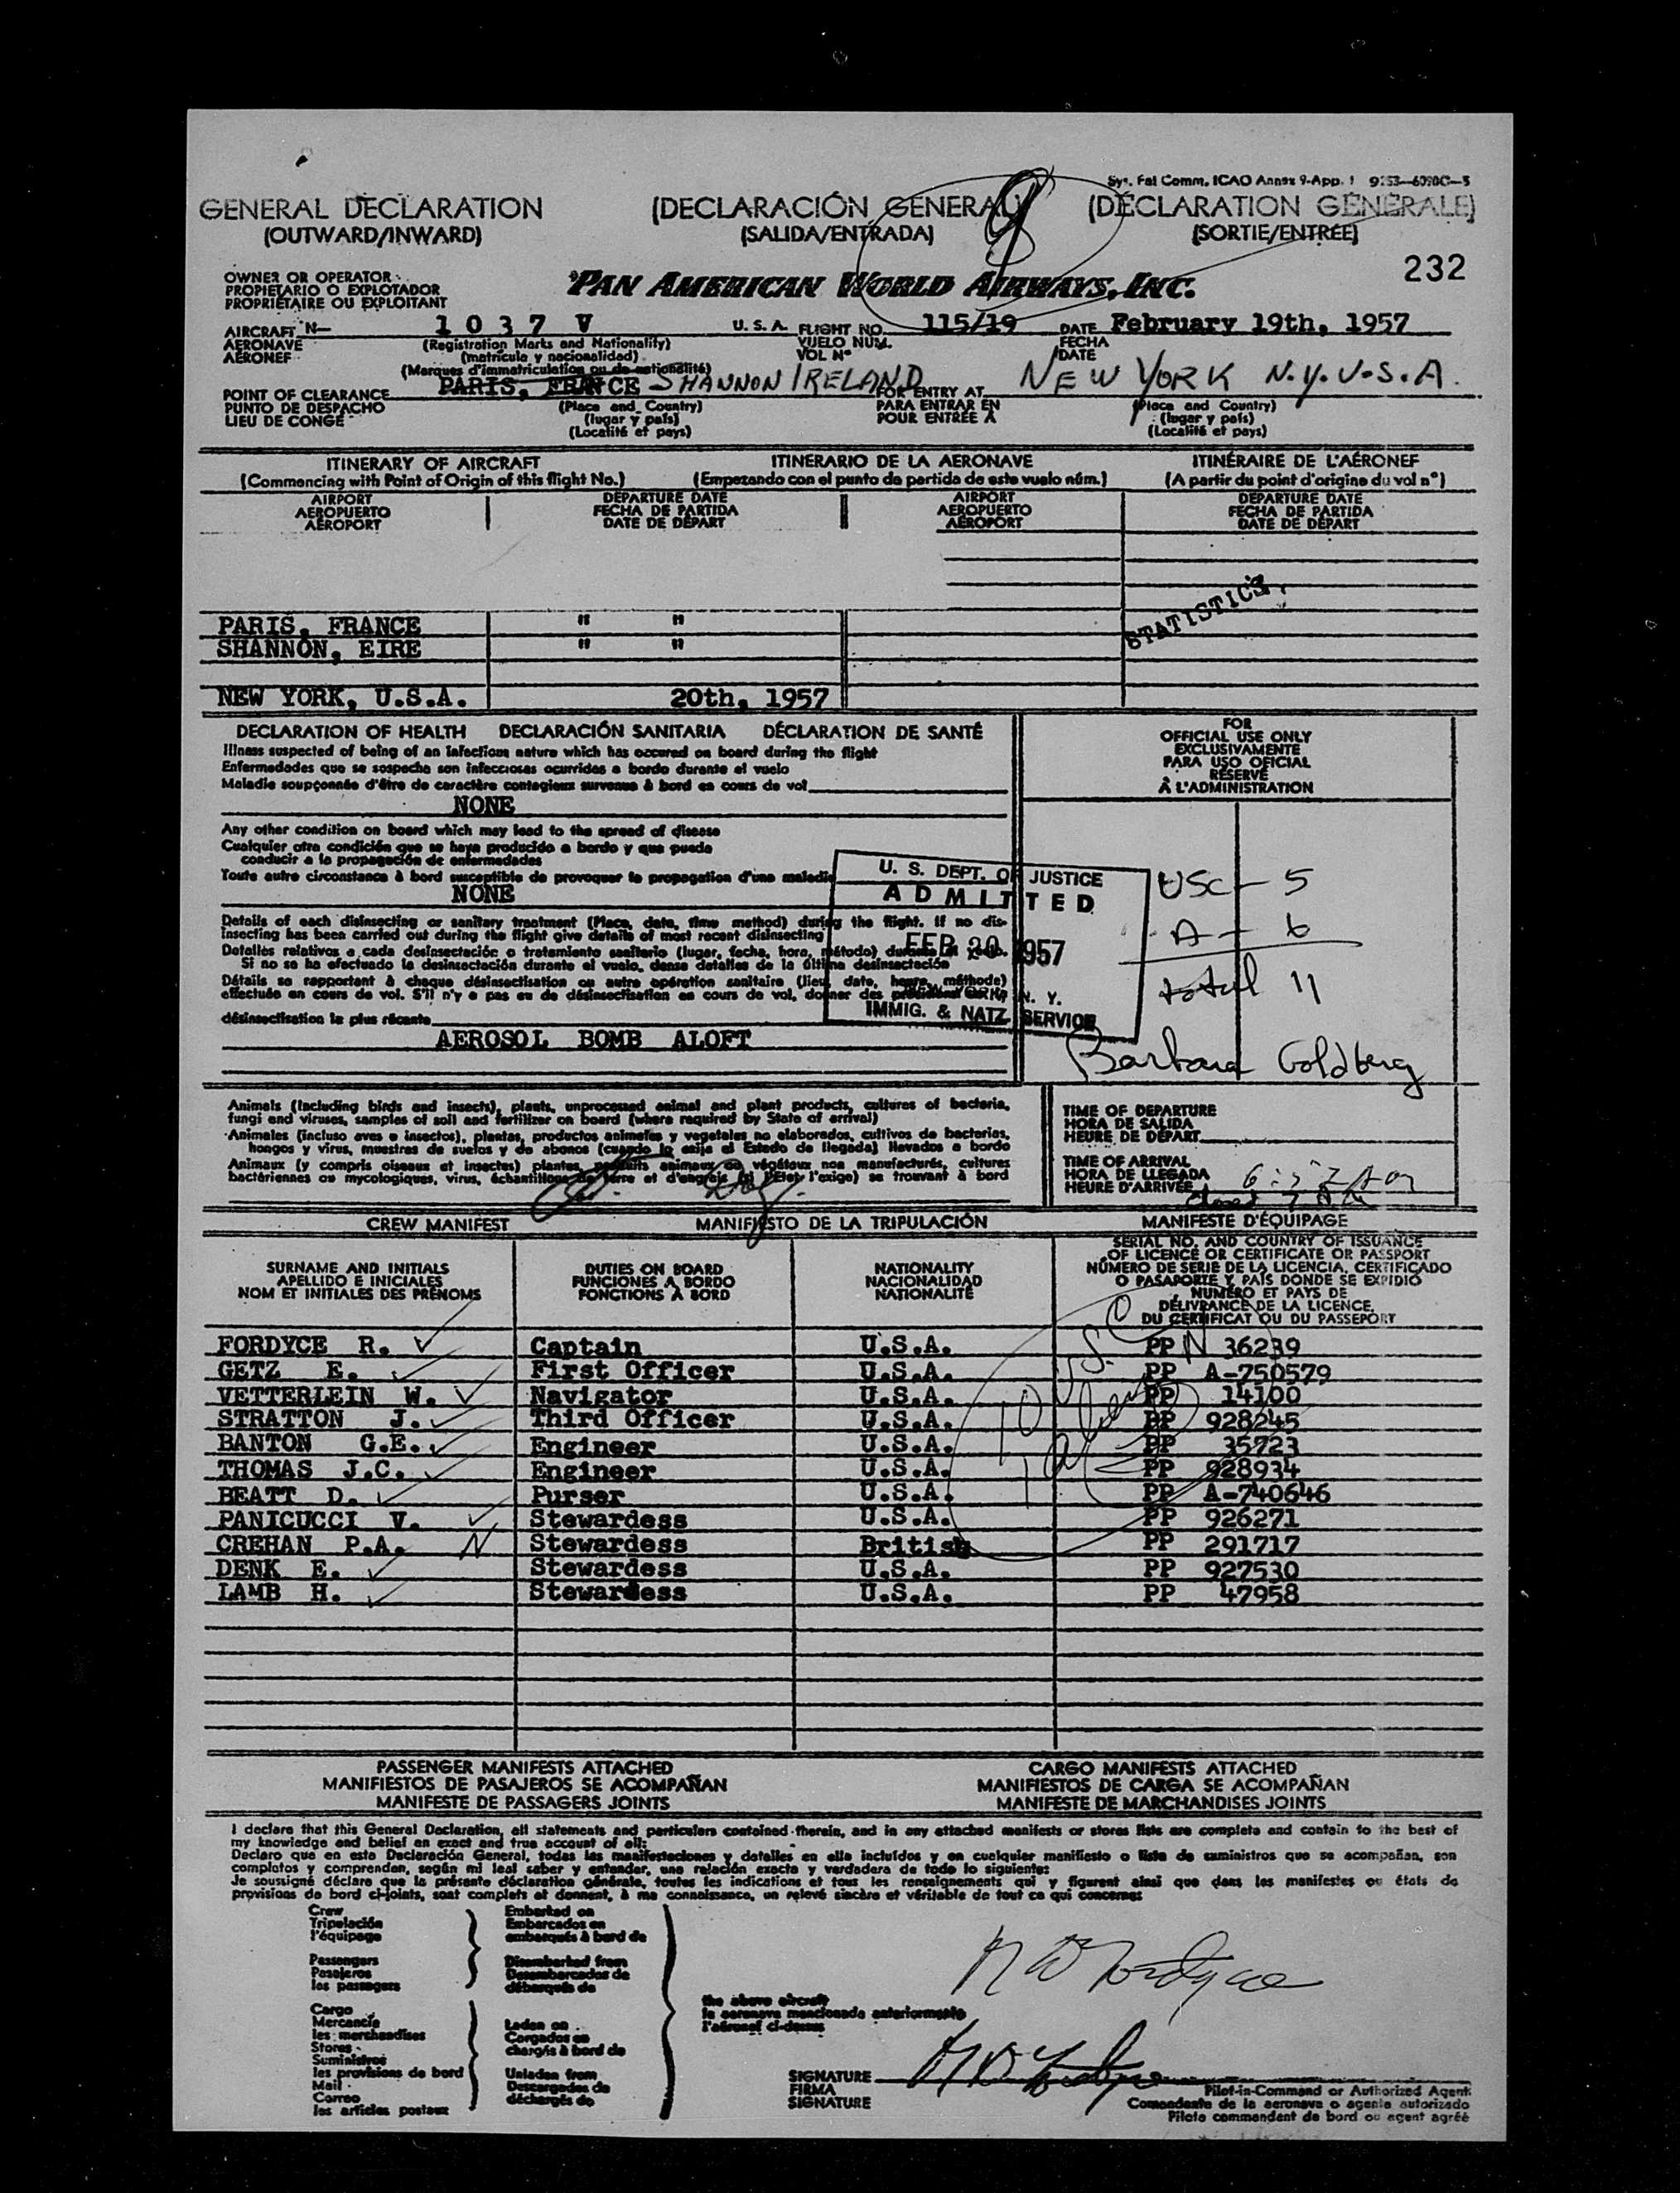 Sys. Fal Comm. ICAO Annex 9-App. 1 9153-6090C-5
GENERAL DECLARATION (DECLARACIÓN GENERAL) (DÉCLARATION GÉNÉRALE)
(OUTWARD/INWARD) (SALIDA/ENTRADA) (SORTIE/ENTRÉE)
232
OWNER OR OPERATOR
PROPIETARIO O EXPLOTADOR
PROPRIÉTAIRE OU EXPLOITANT
PAN AMERICAN WORLD AIRWAYS, INC.
AIRCRAFT N- 1 0 3 7 V U. S. A. FLIGHT NO. 115/19 DATE February 19th, 1957
AERONAVE (Registration Marks and Nationality) VUELO NUM. FECHA
AÉRONEF (matrícula y nacionalidad) VOL Nº DATE
(Marques d'immatriculation ou de nationalité)
POINT OF CLEARANCE PARIS, FRANCE SHANNON IRELAND FOR ENTRY AT NEW YORK N.Y. U.S.A.
PUNTO DE DESPACHO (Place and Country) PARA ENTRAR EN (Place and Country)
LIEU DE CONGÉ (lugar y país) POUR ENTRÉE À (lugar y país)
(Localité et pays) (Localité et pays)
ITINERARY OF AIRCRAFT ITINERARIO DE LA AERONAVE ITINÉRAIRE DE L'AÉRONEF
(Commencing with Point of Origin of this flight No.) (Empezando con el punto de partida de este vuelo núm.) (A partir du point d'origine du vol nº)
AIRPORT DEPARTURE DATE AIRPORT DEPARTURE DATE
AEROPUERTO FECHA DE PARTIDA AEROPUERTO FECHA DE PARTIDA
AÉROPORT DATE DE DÉPART AÉROPORT DATE DE DÉPART
STATISTICS
PARIS, FRANCE " "
SHANNON, EIRE " "
NEW YORK, U.S.A. 20th, 1957
DECLARATION OF HEALTH DECLARACIÓN SANITARIA DÉCLARATION DE SANTÉ
Illness suspected of being of an infectious nature which has occured on board during the flight
Enfermedades que se sospecha son infecciosas ocurridas a bordo durante el vuelo
Maladie soupçonnée d'être de caractère contagieux survenue à bord en cours de vol
NONE
Any other condition on board which may lead to the spread of disease
Cualquier otra condición que se haya producido a bordo y que pueda
conducir a la propagación de enfermedades
Toute autre circonstance à bord susceptible de provoquer la propagation d'une maladie
NONE
Details of each disinsecting or sanitary treatment (Place, date, time method) during the flight. If no dis-
insecting has been carried out during the flight give details of most recent disinsecting
Detalles relativos a cada desinsectación o tratamiento sanitario (lugar, fecha, hora, método) durante el vuelo.
Si no se ha efectuado la desinsectación durante el vuelo, dense detalles de la última desinsectación
Détails se rapportant à chaque désinsectisation ou autre opération sanitaire (lieu, date, heure, méthode)
effectuée en cours de vol. S'il n'y a pas eu de désinsectisation en cours de vol, donner des précisions sur la
désinsectisation la plus récente
AEROSOL BOMB ALOFT
FOR
OFFICIAL USE ONLY
EXCLUSIVAMENTE
PARA USO OFICIAL
RÉSERVÉ
À L'ADMINISTRATION
U. S. DEPT. OF JUSTICE
ADMITTED
FEB 20 1957
N. Y.
IMMIG. & NATZ. SERVICE
USC - 5
A - 6
total 11
Barbara Goldberg
Animals (including birds and insects), plants, unprocessed animal and plant products, cultures of bacteria,
fungi and viruses, samples of soil and fertilizer on board (where required by State of arrival)
Animales (incluso aves e insectos), plantas, productos animales y vegetales no elaborados, cultivos de bacterias,
hongos y virus, muestras de suelos y de abonos (cuando lo exija el Estado de llegada) llevados a bordo
Animaux (y compris oiseaux et insectes) plantes, produits animaux ou végétaux non manufacturés, cultures
bactériennes ou mycologiques, virus, échantillons de terre et d'engrais (si l'Etat l'exige) se trouvant à bord
TIME OF DEPARTURE
HORA DE SALIDA
HEURE DE DÉPART
TIME OF ARRIVAL
HORA DE LLEGADA
HEURE D'ARRIVÉE
CREW MANIFEST MANIFIESTO DE LA TRIPULACIÓN MANIFESTE D'ÉQUIPAGE
SURNAME AND INITIALS
APELLIDO E INICIALES
NOM ET INITIALES DES PRÉNOMS
DUTIES ON BOARD
FUNCIONES A BORDO
FONCTIONS À BORD
NATIONALITY
NACIONALIDAD
NATIONALITÉ
SERIAL NO. AND COUNTRY OF ISSUANCE
OF LICENCE OR CERTIFICATE OR PASSPORT
NÚMERO DE SERIE DE LA LICENCIA, CERTIFICADO
O PASAPORTE Y PAÍS DONDE SE EXPIDIÓ
NUMÉRO ET PAYS DE
DÉLIVRANCE DE LA LICENCE,
DU CERTIFICAT OU DU PASSEPORT
FORDYCE R. Captain U.S.A. PP N 36239
GETZ E. First Officer U.S.A. PP A-750579
VETTERLEIN W. Navigator U.S.A. PP 14100
STRATTON J. Third Officer U.S.A. PP 928245
BANTON G.E. Engineer U.S.A. PP 35723
THOMAS J.C. Engineer U.S.A. PP 928934
BEATT D. Purser U.S.A. PP A-740646
PANICUCCI V. Stewardess U.S.A. PP 926271
CREHAN P.A. N Stewardess British PP 291717
DENK E. Stewardess U.S.A. PP 927530
LAMB H. Stewardess U.S.A. PP 47958
10 USC
1 alien
PASSENGER MANIFESTS ATTACHED CARGO MANIFESTS ATTACHED
MANIFIESTOS DE PASAJEROS SE ACOMPAÑAN MANIFIESTOS DE CARGA SE ACOMPAÑAN
MANIFESTE DE PASSAGERS JOINTS MANIFESTE DE MARCHANDISES JOINTS
I declare that this General Declaration, all statements and particulars contained therein, and in any attached manifests or stores lists are complete and contain to the best of
my knowledge and belief an exact and true account of all:
Declaro que en esta Declaración General, todas las manifestaciones y detalles en ella incluídos y en cualquier manifiesto o lista de suministros que se acompañan, son
completos y comprenden, según mi leal saber y entender, una relación exacta y verdadera de todo lo siguiente:
Je soussigné déclare que la présente déclaration générale, toutes les indications et tous les renseignements qui y figurent ainsi que dans les manifestes ou états de
provisions de bord ci-joints, sont complets et donnent, à ma connaissance, un relevé sincère et véritable de tout ce qui concerne:
Crew
Tripulación
l'équipage
Passengers
Pasajeros
les passagers
Cargo
Mercancía
les merchandises
Stores
Suministros
les provisions de bord
Mail
Correo
les articles postaux
Embarked on
Embarcados en
embarqués à bord de
Disembarked from
Desembarcados de
débarqués de
Laden on
Cargados en
chargés à bord de
Unladen from
Descargados de
déchargés de
the above aircraft
la aeronave mencionada anteriormente
l'aéronef ci-dessus
SIGNATURE
FIRMA
SIGNATURE
Pilot-in-Command or Authorized Agent
Comandante de la aeronave o agente autorizado
Pilote commandant de bord ou agent agréé